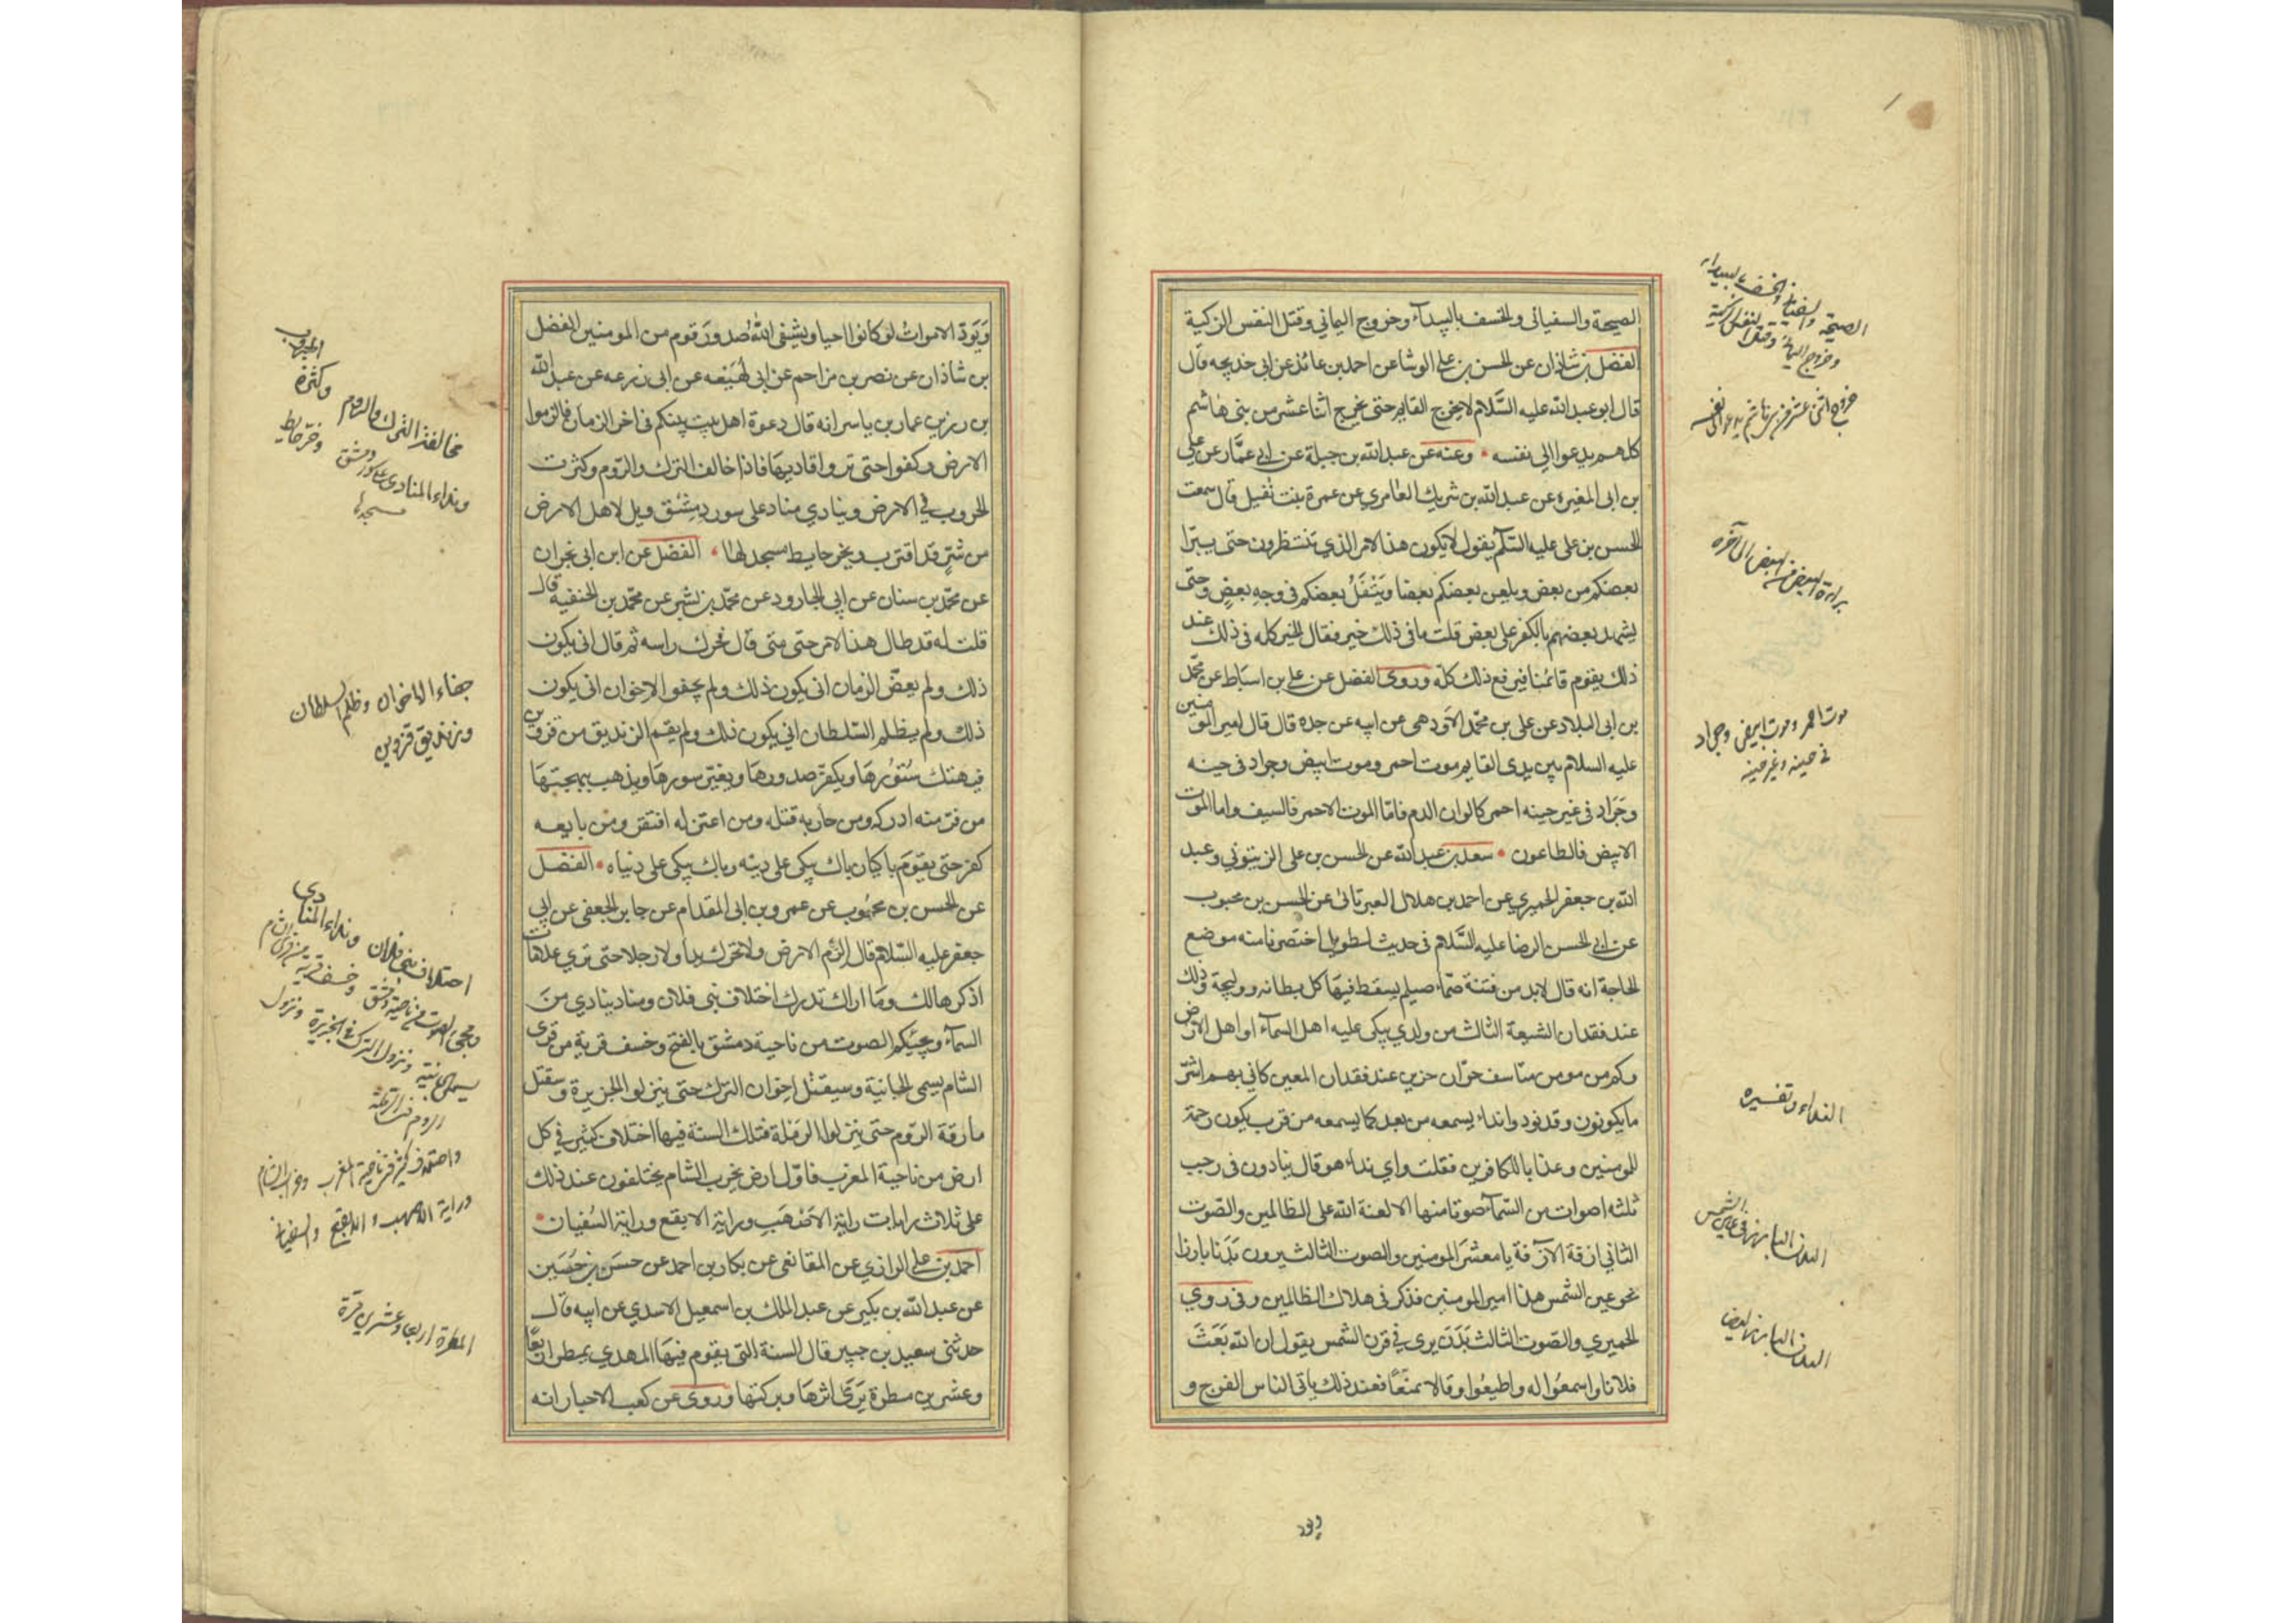 الصيحة والسفياني والخسف بالبيداء وخروج اليماني وقتل النفس الزكية
الفضل بن شاذان عن الحسن بن علي الوشا عن احمد بن عائذ عن ابي خديجه قال
قال ابو عبد الله عليه السلام لا يخرج القايم حتى يخرج اثنا عشر من بني هاشم
كلهم يدعوا الى نفسه • وعنه عن عبد الله بن جبلة عن ابي عمّار عن علي
بن ابي المغيره عن عبد الله بن شريك العامري عن عمرة بنت نفيل قال سمعت
الحسن بن علي عليه السلم يقول لا يكون هذا الامر الذي تنتظرون حتى يبترا
بعضكم من بعض ويلعن بعضكم بعضا ويَتْفَلُ بعضكم في وجه بعض وحتى
يشهد بعضهم بالكفر على بعض قلت ما في ذلك خير فقال الخير كله في ذلك عند
ذلك يقوم قائمنا فيرفع ذلك كلّه وروى الفضل عن علي بن اسباط عن محمّد
بن ابي البلاد عن علي بن محمّد الاودهي عن ابيه عن جده قال قال امير المومنين
عليه السلام بين يدي القايم موت احمر وموت ابيض وجراد في حينه
وجَرَاد في غير حينه احمر كالوان الدم فامّا الموت الاحمر فالسيف واما الموت
الابيض فالطاعون • سعد بن عبد الله عن الحسن بن علي الزيتوني وعبد
الله بن جعفر الحميري عن احمد بن هلال العبرتائى عن الحسن بن محبوب
عن ابي الحسن الرضا عليه السّلام في حديث له طويل اختصرنا منه موضع
الحاجة انه قال لابد من فتنة صمّاء صيلم يسقط فيها كل بطانه ووليجة وذلك
عند فقدان الشيعة الثالث من ولدي يبكى عليه اهل السمآء او اهل الارض
وكم من مومن متاسف حرّان حزين عند فقدان المعين كاني بهم اشرّ
ما يكونون وقد نودوا نداء يسمعه من بعد كما يسمعه من قرب يكون رحمة
للمومنين وعذابا للكافرين فقلت واي نداء هو قال ينادون في رجب
ثلثه اصوات من السّمآء صوتا منها الا لعنة الله على الظالمين والصّوت
الثاني ازفة الآزفة يا معشر المومنين والصوت الثالث يرون بَدَنا بارزا
نحو عين الشمس هذا امير المومنين فذكر في هلاك الظالمين وفي روي
الحميري والصّوت الثالث بَدَن يرى في قرن الشمس يقول ان الله بَعَثَ
فلانا واسمعُوا له واطيعُوا وقالا جميعًا فعند ذلك ياتي الناس الفرج و
ويود
الصيحة والسفياني والخسف بالبيداء
وخروج اليماني وقتل النفس الزكية
خروج اثنى عشر من بني هاشم يدعو الى نفسه
براءة البعض من البعض الى آخره
موت احمر وموت ابيض وجراد
في حينه وغير حينه
النداء وتفسيره
البدن البارز في عين الشمس
البدن البارز ايضا
وَيَودّ الاموات لو كانوا احيا ويشفى الله صدورَ قوم من المومنين الفضل
بن شاذان عن نصر بن مزاحم عن ابى لَهَيْعَه عن ابى زرعه عن عبد الله
بن رزين عمار بن ياسر انه قال دعوة اهل بيت بينكم في اخر الزمان فالزموا
الارض وكفوا حتى تروا قاديها فاذا خالف الترك والرّوم وكثرت
الحروب في الارض وينادي مناد على سور دمِشْق ويل لاهل الارض
من شرّ قد اقترب ويخر حايط مسجد لها • الفضل عن ابن ابى نجران
عن محمّد بن سنان عن ابي الجارود عن محمّد بن بشر عن محمّد بن الحنفيه قال
قلت له قد طال هذا الامر حتى متى قال فحرك راسه ثم قال انى يكون
ذلك ولم يعضّ الزمان انى يكون ذلك ولم يجفوا الاخوان انى يكون
ذلك ولم يظلم السّلطان اني يكون ذلك ولم يقم الزنديق من قزوين
فيهتك سُتُورُها ويكفرّ صدورها ويغيّر سورها ويذهب ببهجتهَا
من فرّ منه ادركه ومن حاربه قتله ومن اعتزله افتقر ومن بايعه
كفر حتى يقوم باكيان باك يبكى على دينه وباك يبكى على دنياه • الفضل
عن الحسن بن محبُوب عن عمرو بن ابى المقدام عن جابر الجعفى عن ابي
جعفر عليه السّلام قال الزم الارض ولا تحرك يدا ولا رجلا حتى تري علامات
اذكرها لك ومَا اراك تدرك اختلاف بنى فلان ومناد ينادي منَ
السمآء ويجيئكم الصوت من ناحية دمشق بالفتح وخسف قرية من قرى
الشام يسمى الجابية وسيقتل اخوان الترك حتى ينزلوا الجزيرة وستقتل
مارقة الرّوم حتى ينزلوا الرّملة فتلك السنة فيها اختلاف كثير في كل
ارض من ناحية المغرب فاوّل ارض يخرب الشام يختلفون عند ذلك
على ثلاث رايات راية الاصْهَب وراية الابقع وراية السُّفيان •
احمد بن علي الرازي عن المقانعى عن بكار بن احمد عن حسَن بن حُسَين
عن عبد الله بن بكير عن عبد الملك بن اسمعيل الاسدي عن ابيه قال
حدثنى سعيد بن جبير قال السنة التى يقوم فيها المهدي يمطر اربعًا
وعشرين مطرة يَرَى اثرها وبركتها وروى عن كعب الاحبار انه
مخالفة الترك والروم وكثرة الحروب
ونداء المنادى على سور دمشق وخر حايط
مسجدها
جفاء الاخوان وظلم السلطان
وزنديق قزوين
اختلاف بنى فلان ونداء المنادى
ومجى الصوت من ناحية دمشق وخسف قرية من قرى الشام
يسمى الجابية ونزول الترك في الجزيرة ونزول
الروم في الرملة
واختلاف كثير في ناحية المغرب وخراب الشام
وراية الاصهب والابقع والسفياني
المطرة اربعا وعشرين مرة